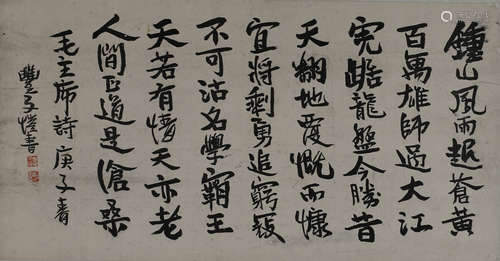 鍾山風雨起蒼黃
百萬雄師過大江
虎踞龍盤今勝昔
天翻地覆慨而慷
宜將剩勇追窮寇
不可沽名學霸王
天若有情天亦老
人間正道是滄桑
毛主席詩庚子春
豐子愷書